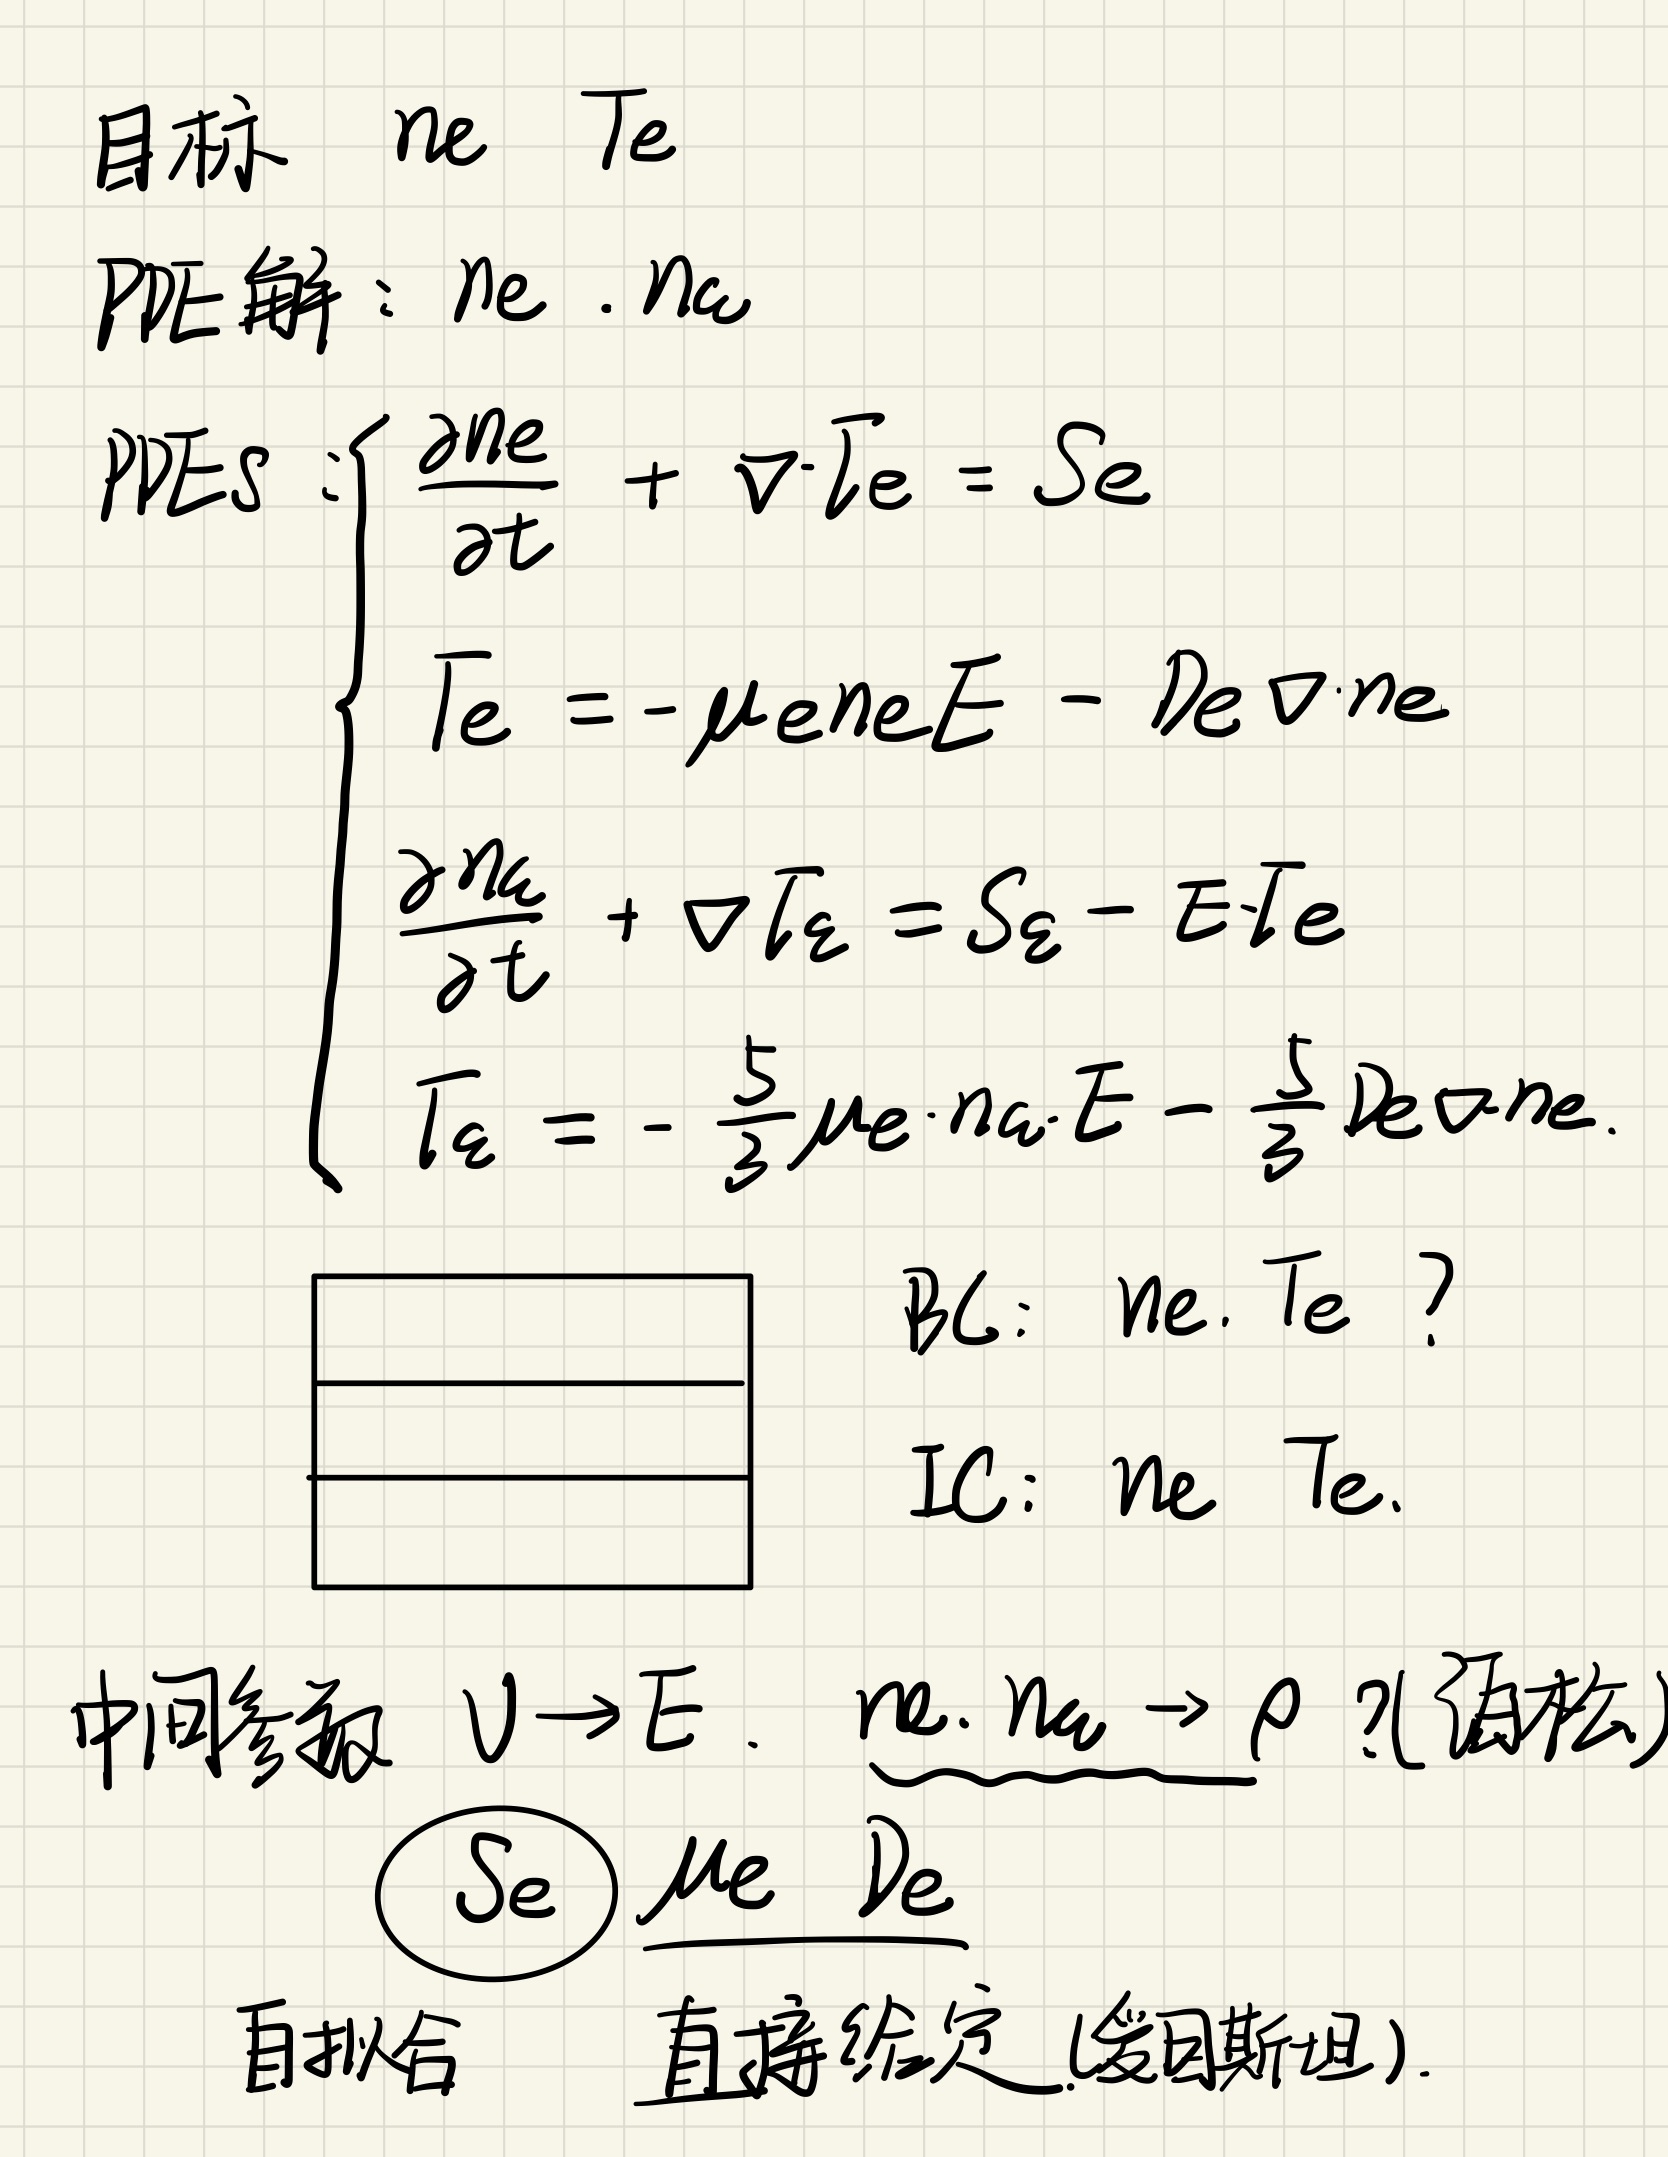 目标 ne Te
PDE解: ne . nε
PDEs: ∂ne/∂t + ∇·Γe = Se
Γe = -μeneE - De∇·ne
∂nε/∂t + ∇Γε = Sε - E·Γe
Γε = - 5/3 μe·nε·E - 5/3 De∇·ne.
BC: ne. Te ?
IC: ne Te.
中间参数 V→E. ne. nε → ρ ?(泊松)
Se μe De
自拟合 直接给定.(爱因斯坦).